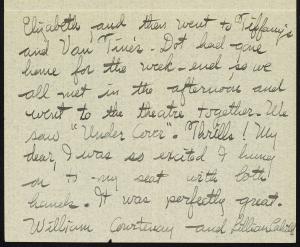 Elizabeth, and then went to Tiffany's
and Van Tine's - Dot had gone
home for the week-end, so we
all met in the afternoon and
went to the theatre together. We
saw "Under Cover". Thrills! My
dear, I was so excited I hung
on to my seat with both
hands. It was perfectly great.
William Courtenay and Lillian